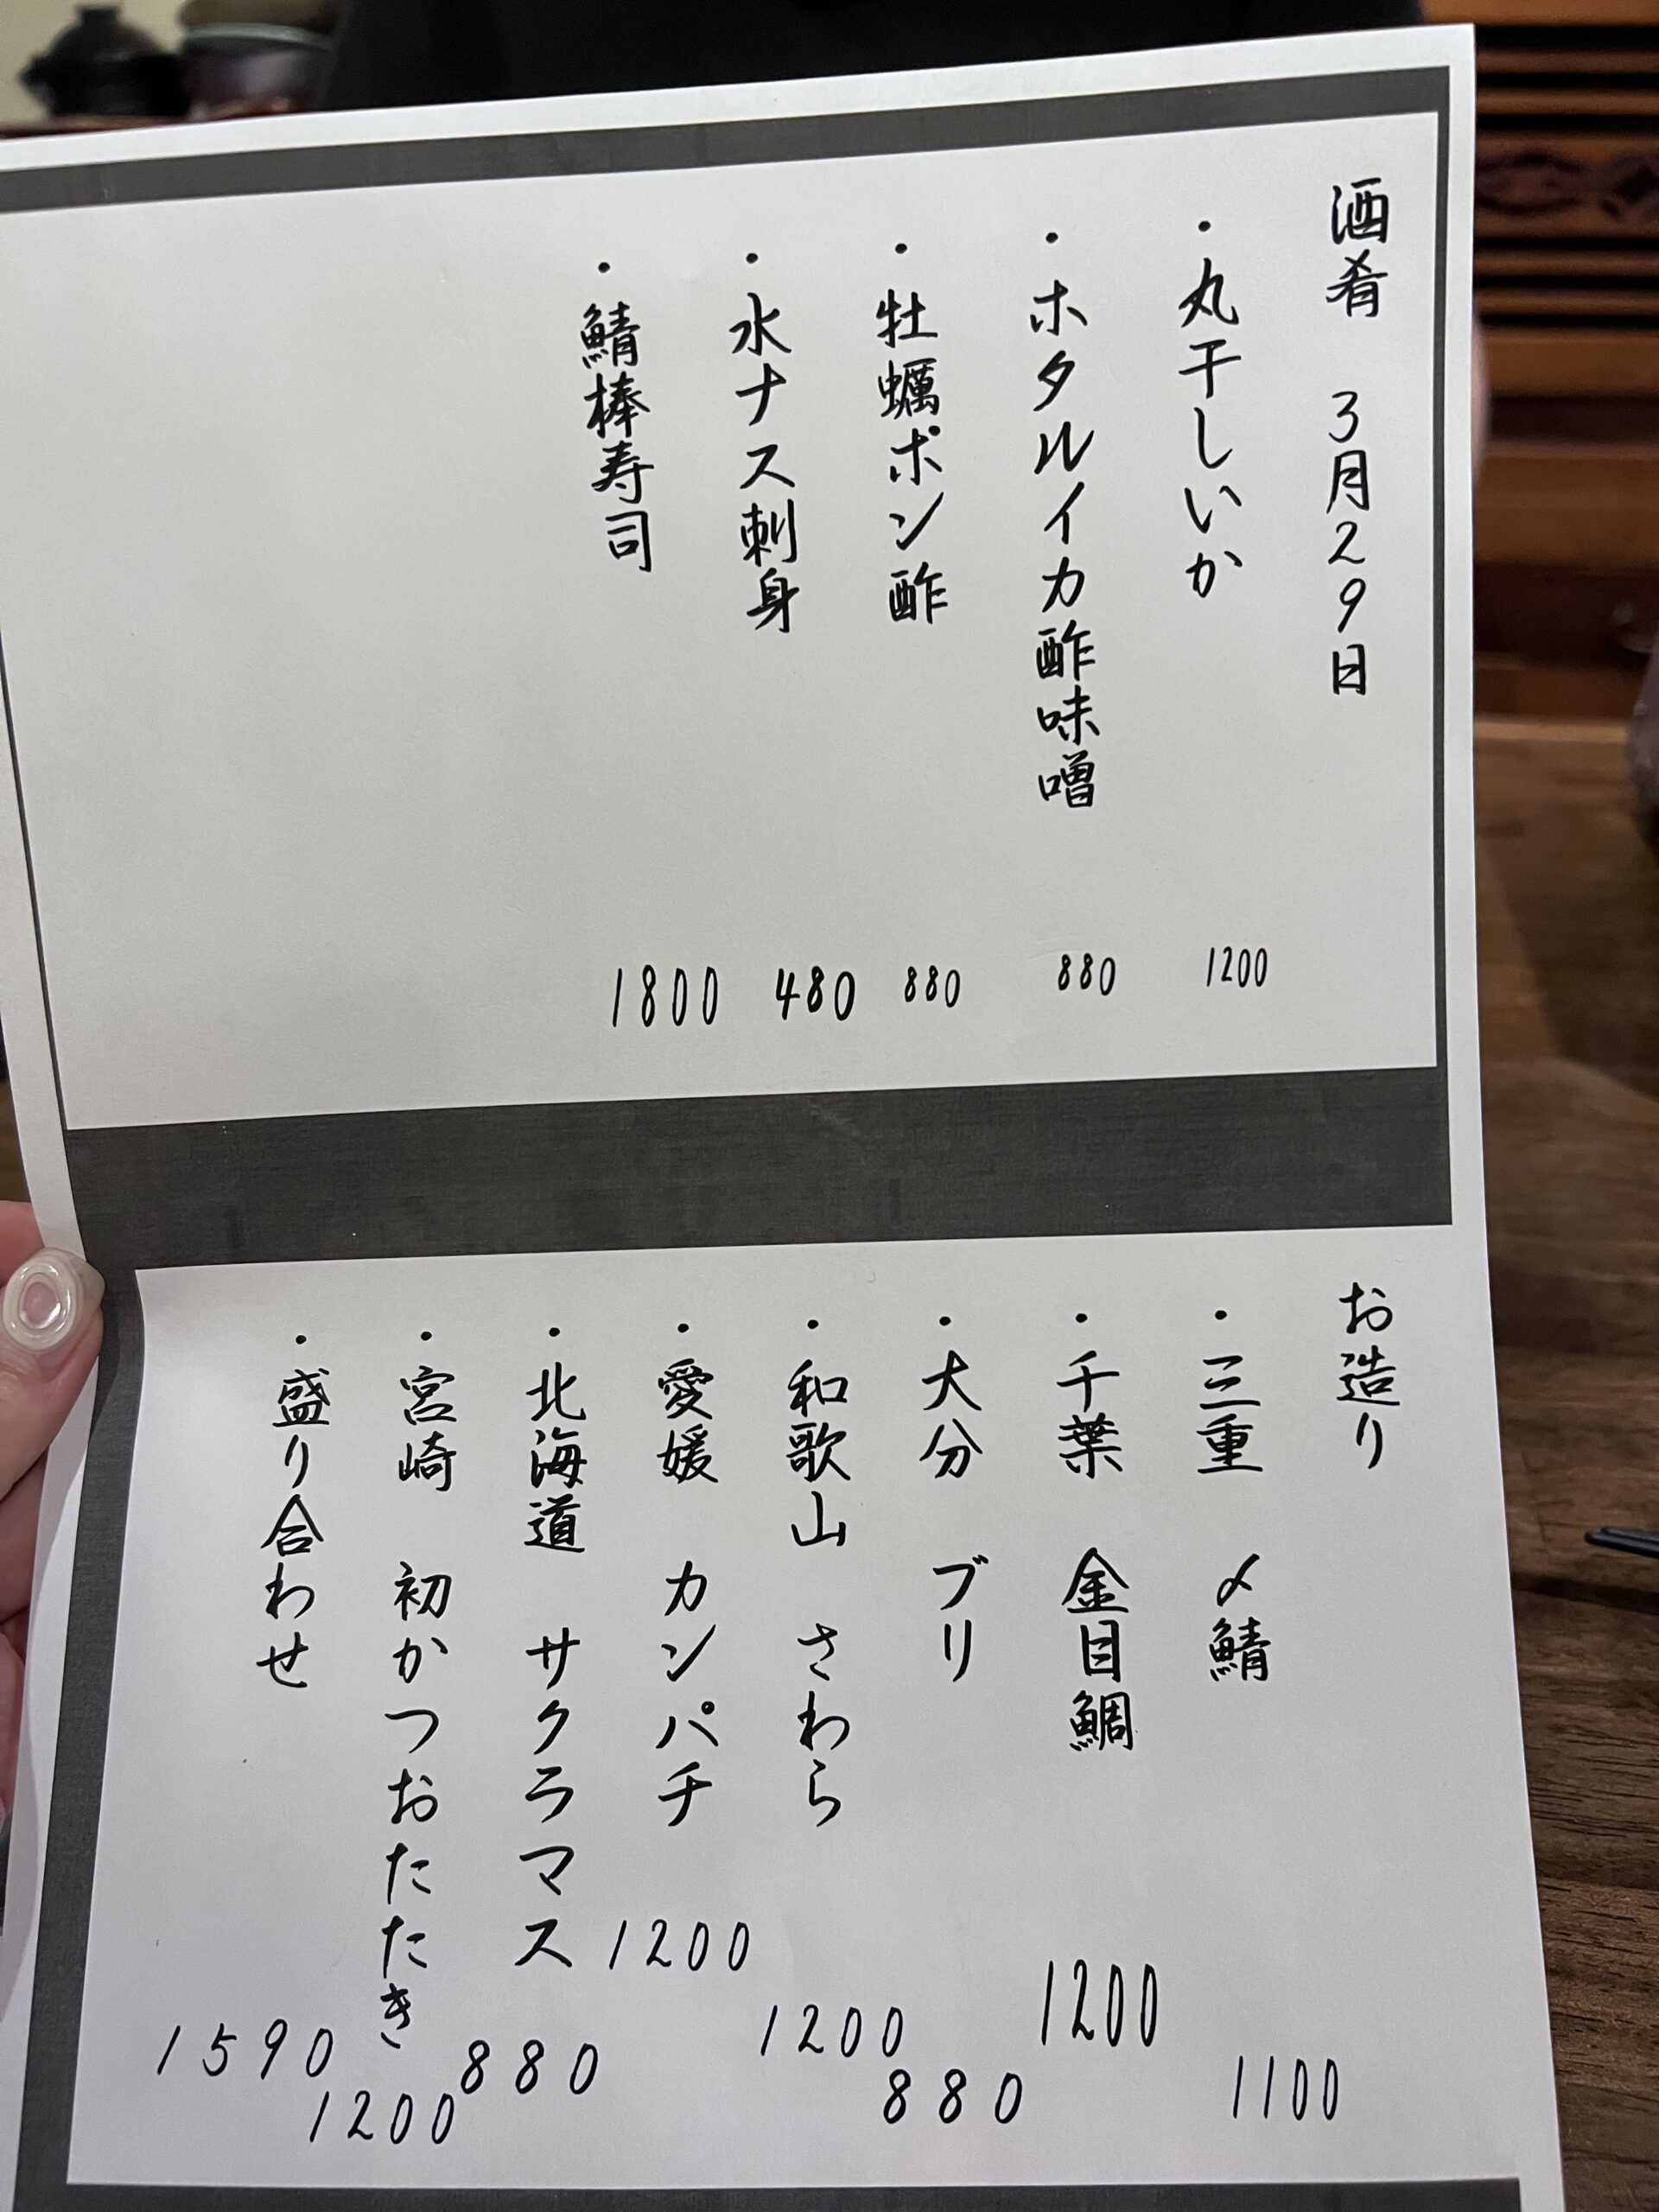 酒肴 3月29日
・丸干しいか 1200
・ホタルイカ酢味噌 880
・牡蠣ポン酢 880
・水ナス刺身 480
・鯖棒寿司 1800
お造り
・三重 〆鯖 1100
・千葉 金目鯛 1200
・大分 ブリ 880
・和歌山 さわら 1200
・愛媛 カンパチ 1200
・北海道 サクラマス 880
・宮崎 初かつおたたき 1200
・盛り合わせ 1590